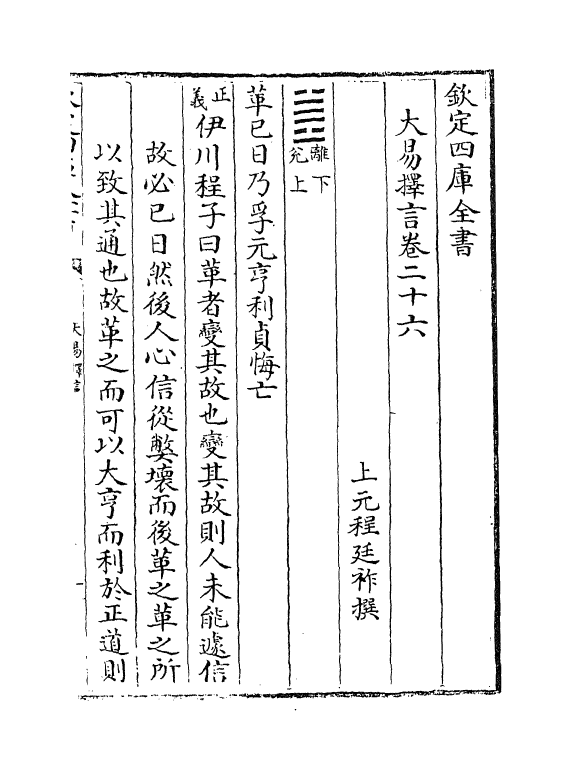 欽定四庫全書
大易擇言卷二十六
上元程廷祚撰
離下
兊上
革已日乃孚元亨利貞悔亡
正義
伊川程子曰革者變其故也變其故則人未能遽信
故必已日然後人心信從弊壞而後革之革之所
以致其通也故革之而可以大亨而利於正道則
大易擇言